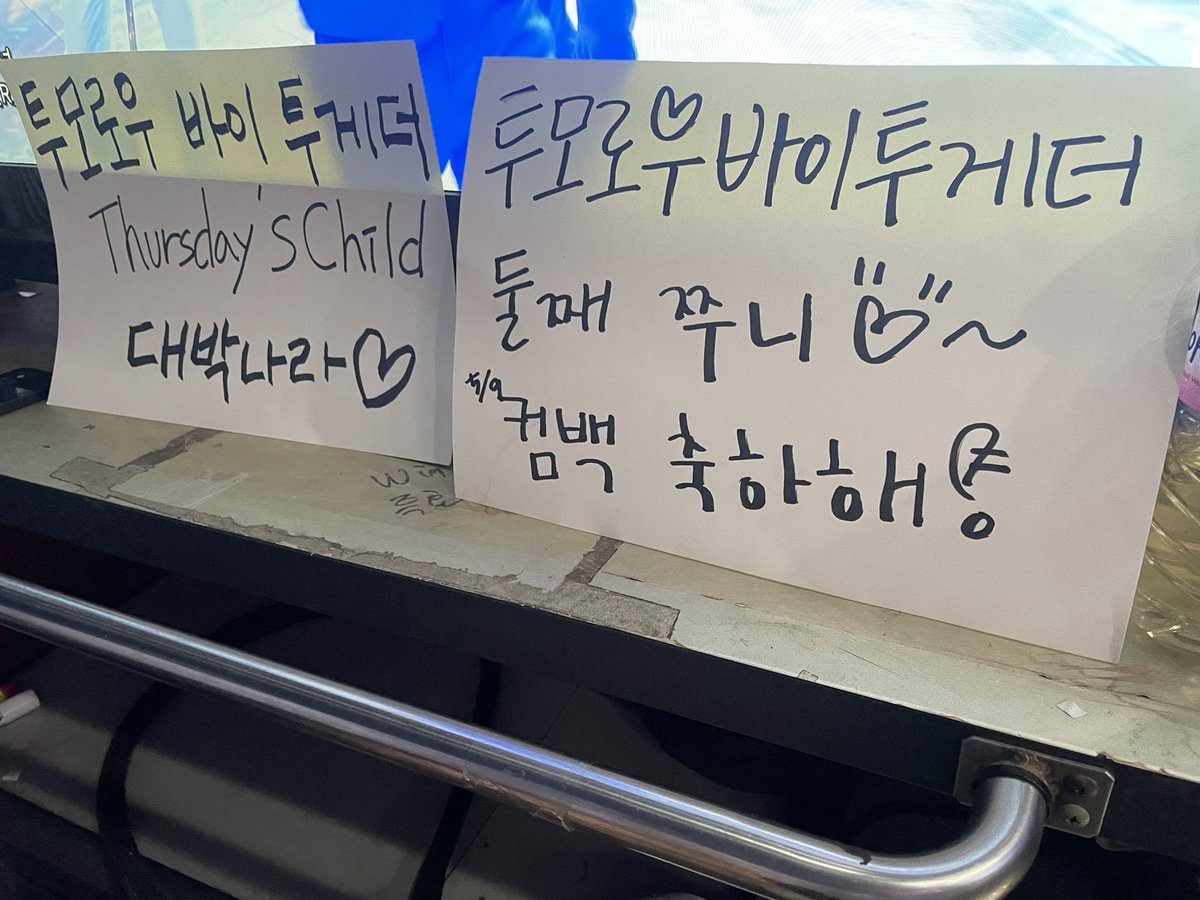 투모로우 바이 투게더
Thursday's Child
대박나라♡
투모로우바이투게더
둘째 쭈니♡~
5/9 컴백 축하해